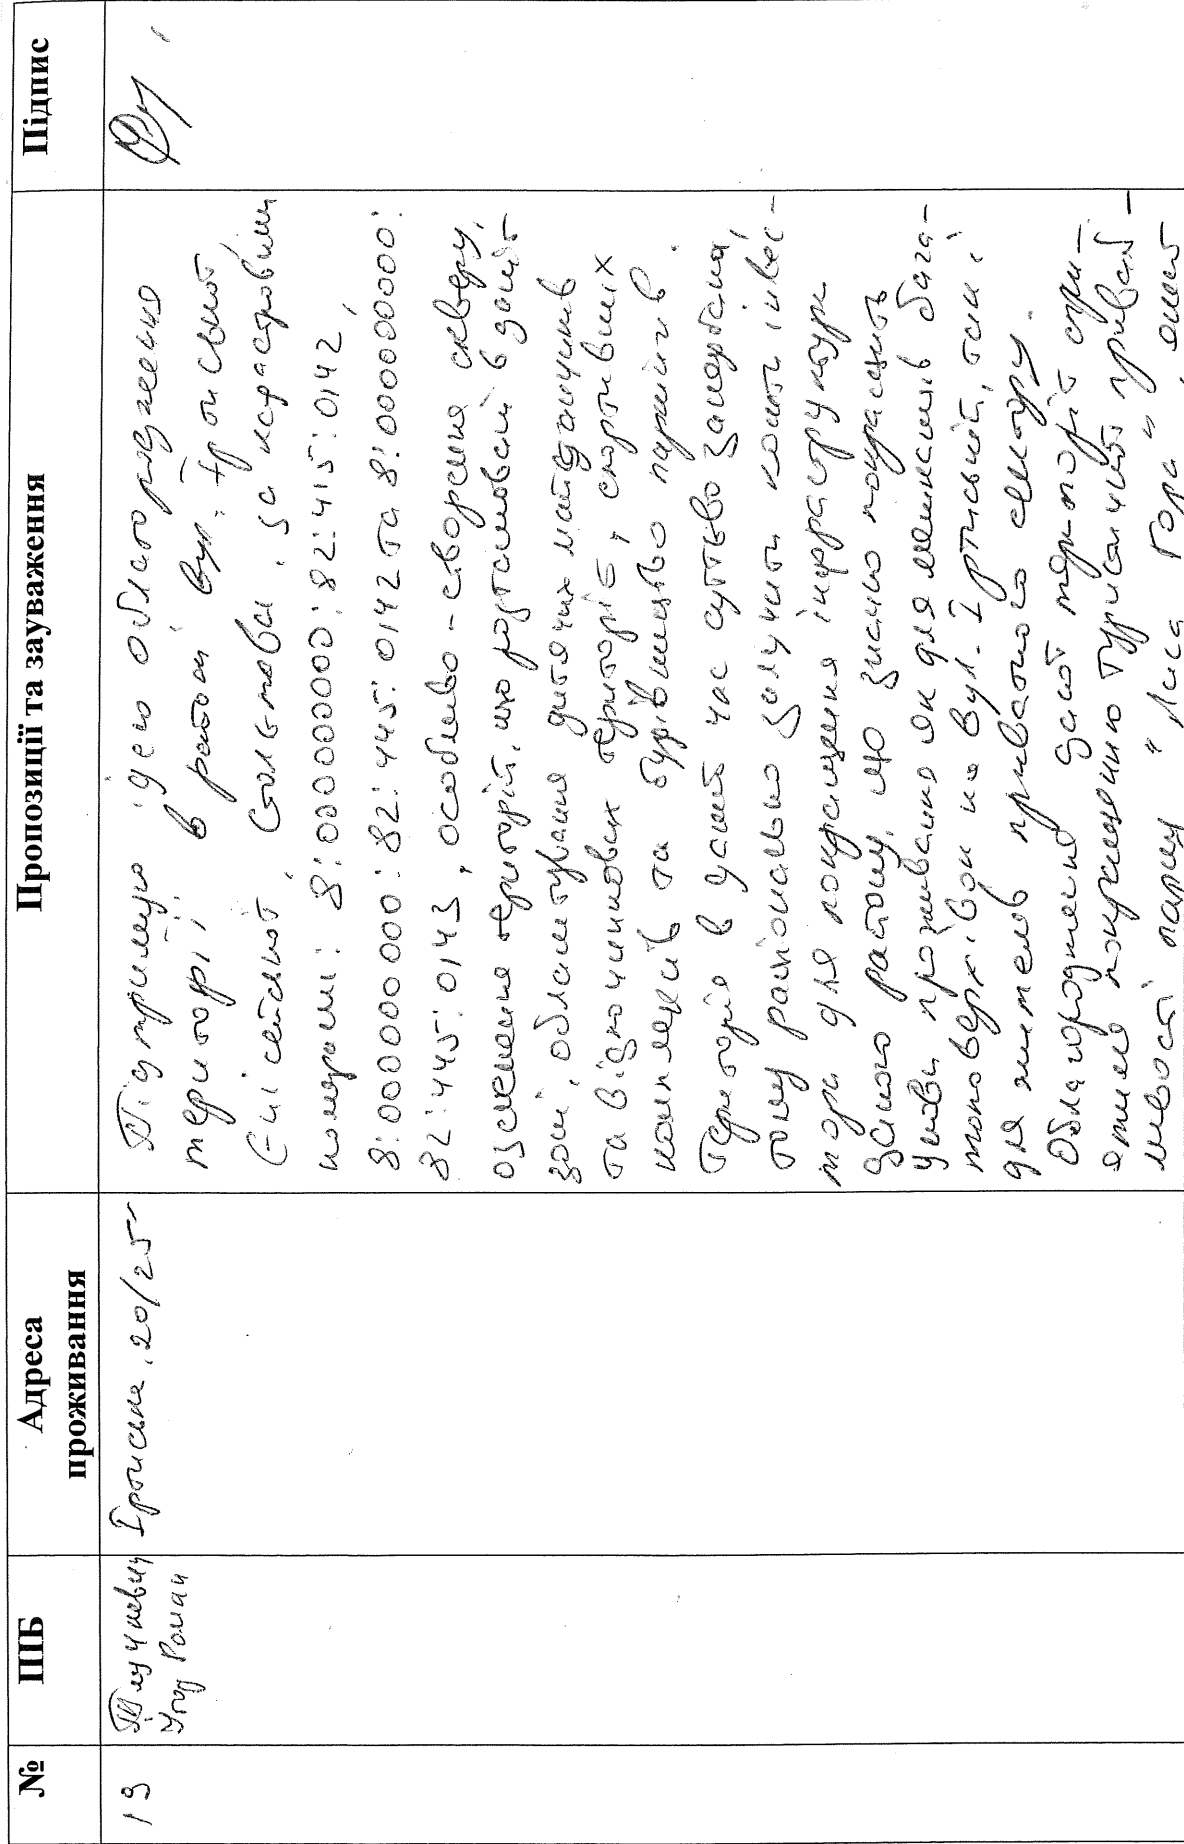 №
ПІБ
Адреса
проживання
Пропозиції та зауваження
Підпис
19
Роман
Ірпінська, 20/25
Підтримую ідею облагородження
території в районі вул. Ірпінської,
Єнісейської, за кадастровими
номерами: 8:000000000:82:415:0142,
8:000000000:82:445:0142 та 8:000000000:
82:445:0143, особливо – створення скверу,
озеленення територій, що розташовані в даній
зоні, облаштування дитячих майданчиків
та відпочинкових територій, спортивних
комплексів та будівництво паркінгів.
Територія в даний час суттєво занедбана,
тому раціонально залучити кошти інвес-
тора для покращення інфраструктури
даного району, що значно покращить
умови проживання як для мешканців бага-
топоверхівок на вул. Ірпінській, так і
для жителів приватного сектору.
Облагородження даної території спри-
ятиме покращенню туристичної приваб-
ливості парку "Лиса Гора",